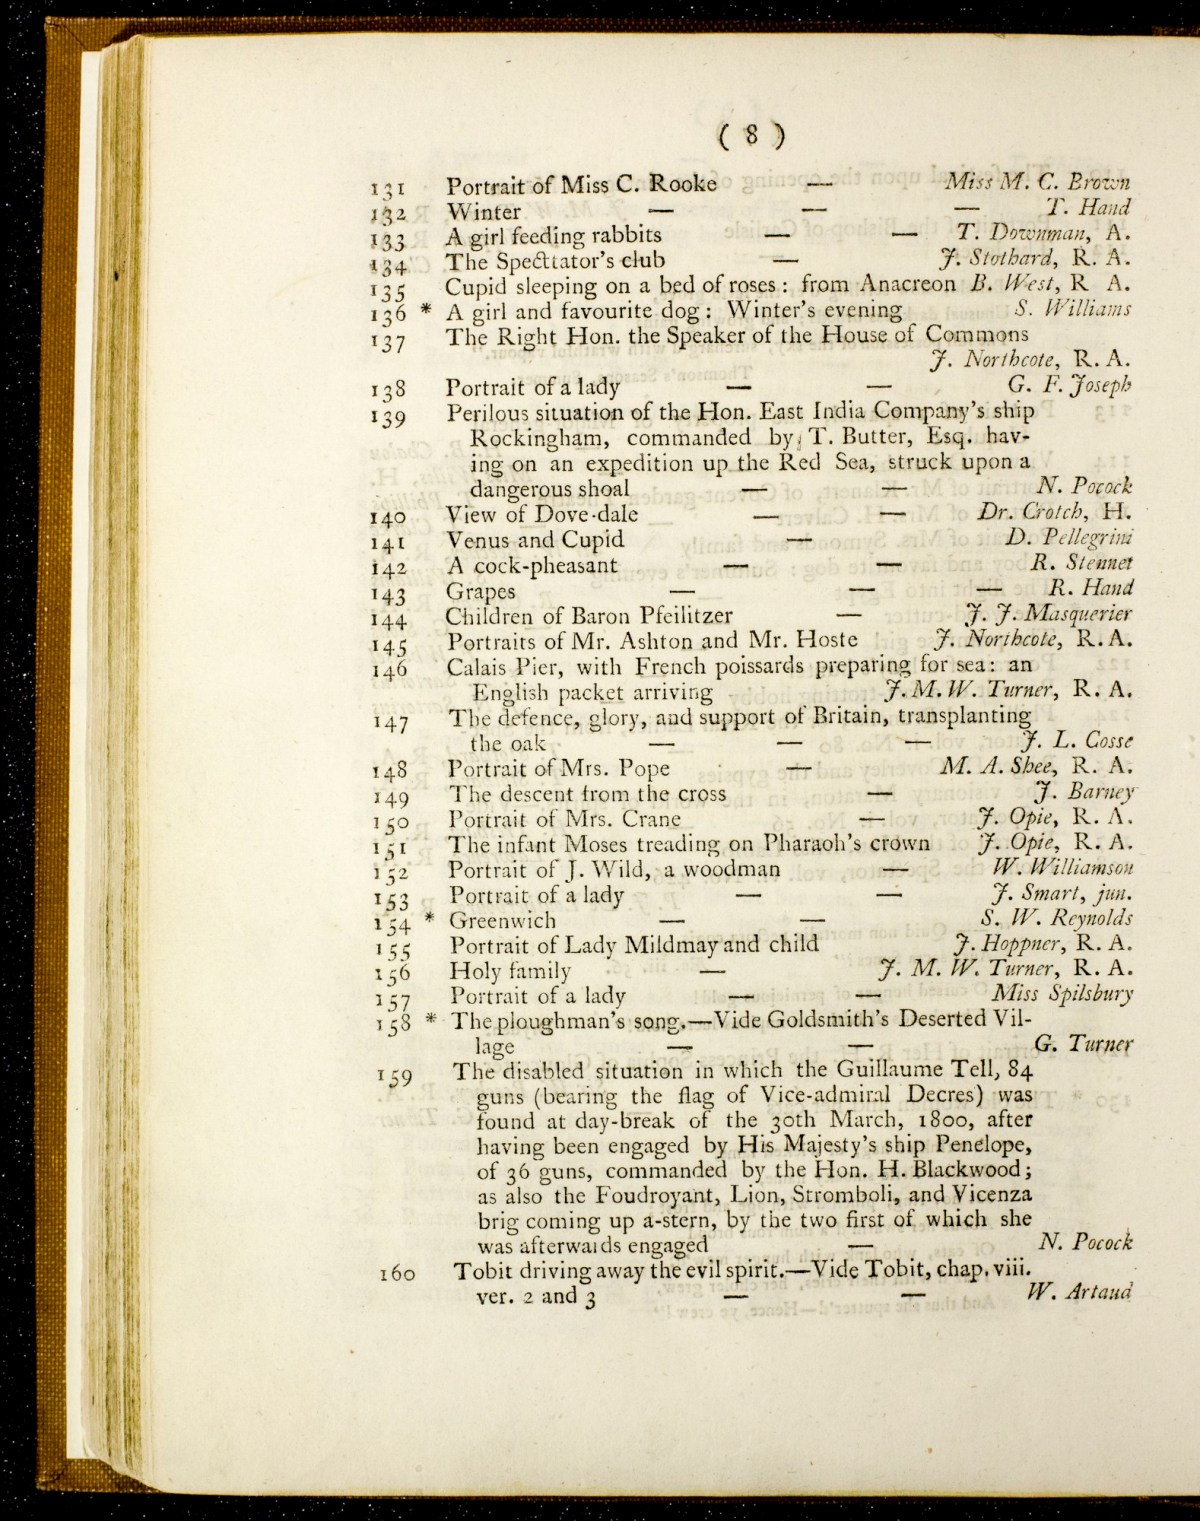 ( 8 )
131 Portrait of Miss C. Rooke — Miss M. C. Brown
132 Winter — — — T. Hand
133 A girl feeding rabbits — — T. Downman, A.
134 The Spectator's club — J. Stothard, R. A.
135 Cupid sleeping on a bed of roses: from Anacreon B. West, R A.
136 * A girl and favourite dog: Winter's evening S. Williams
137 The Right Hon. the Speaker of the House of Commons
J. Northcote, R. A.
138 Portrait of a lady — — G. F. Joseph
139 Perilous situation of the Hon. East India Company's ship
Rockingham, commanded by T. Butter, Esq. hav-
ing on an expedition up the Red Sea, struck upon a
dangerous shoal — — N. Pocock
140 View of Dove-dale — — Dr. Crotch, H.
141 Venus and Cupid — D. Pellegrini
142 A cock-pheasant — — R. Stennet
143 Grapes — — — R. Hand
144 Children of Baron Pfeilitzer — J. J. Masquerier
145 Portraits of Mr. Ashton and Mr. Hoste J. Northcote, R. A.
146 Calais Pier, with French poissards preparing for sea: an
English packet arriving J. M. W. Turner, R. A.
147 The defence, glory, and support of Britain, transplanting
the oak — — — J. L. Cosse
148 Portrait of Mrs. Pope — M. A. Shee, R. A.
149 The descent from the cross — J. Barney
150 Portrait of Mrs. Crane — J. Opie, R. A.
151 The infant Moses treading on Pharaoh's crown J. Opie, R. A.
152 Portrait of J. Wild, a woodman — W. Williamson
153 Portrait of a lady — — J. Smart, jun.
154 * Greenwich — — S. W. Reynolds
155 Portrait of Lady Mildmay and child J. Hoppner, R. A.
156 Holy family — J. M. W. Turner, R. A.
157 Portrait of a lady — — Miss Spilsbury
158 * The ploughman's song.—Vide Goldsmith's Deserted Vil-
lage — — G. Turner
159 The disabled situation in which the Guillaume Tell, 84
guns (bearing the flag of Vice-admiral Decres) was
found at day-break of the 30th March, 1800, after
having been engaged by His Majesty's ship Penelope,
of 36 guns, commanded by the Hon. H. Blackwood;
as also the Foudroyant, Lion, Stromboli, and Vicenza
brig coming up a-stern, by the two first of which she
was afterwards engaged — N. Pocock
160 Tobit driving away the evil spirit.—Vide Tobit, chap. viii.
ver. 2 and 3 — — W. Artaud